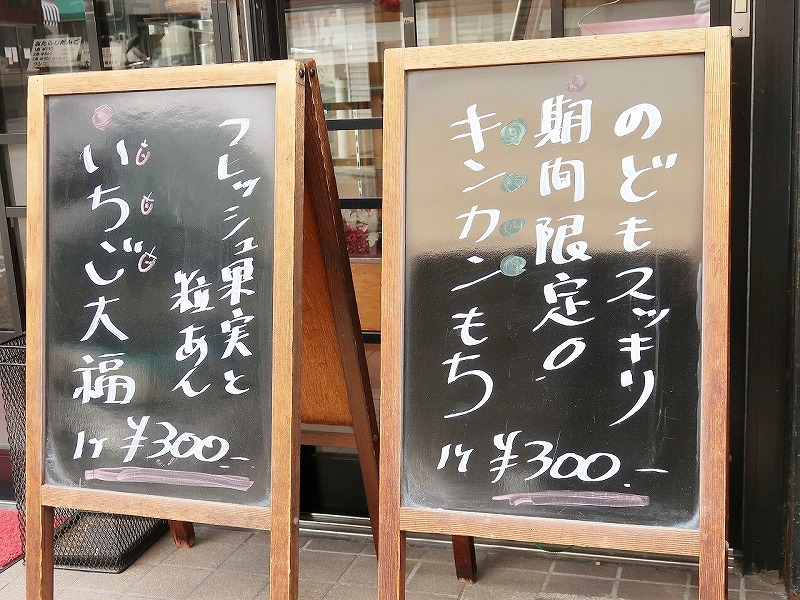 フレッシュ果実と
粒あん
いちご大福
1ケ ¥300.-
のどもスッキリ
期間限定。
キンカンもち
1ケ ¥300.-